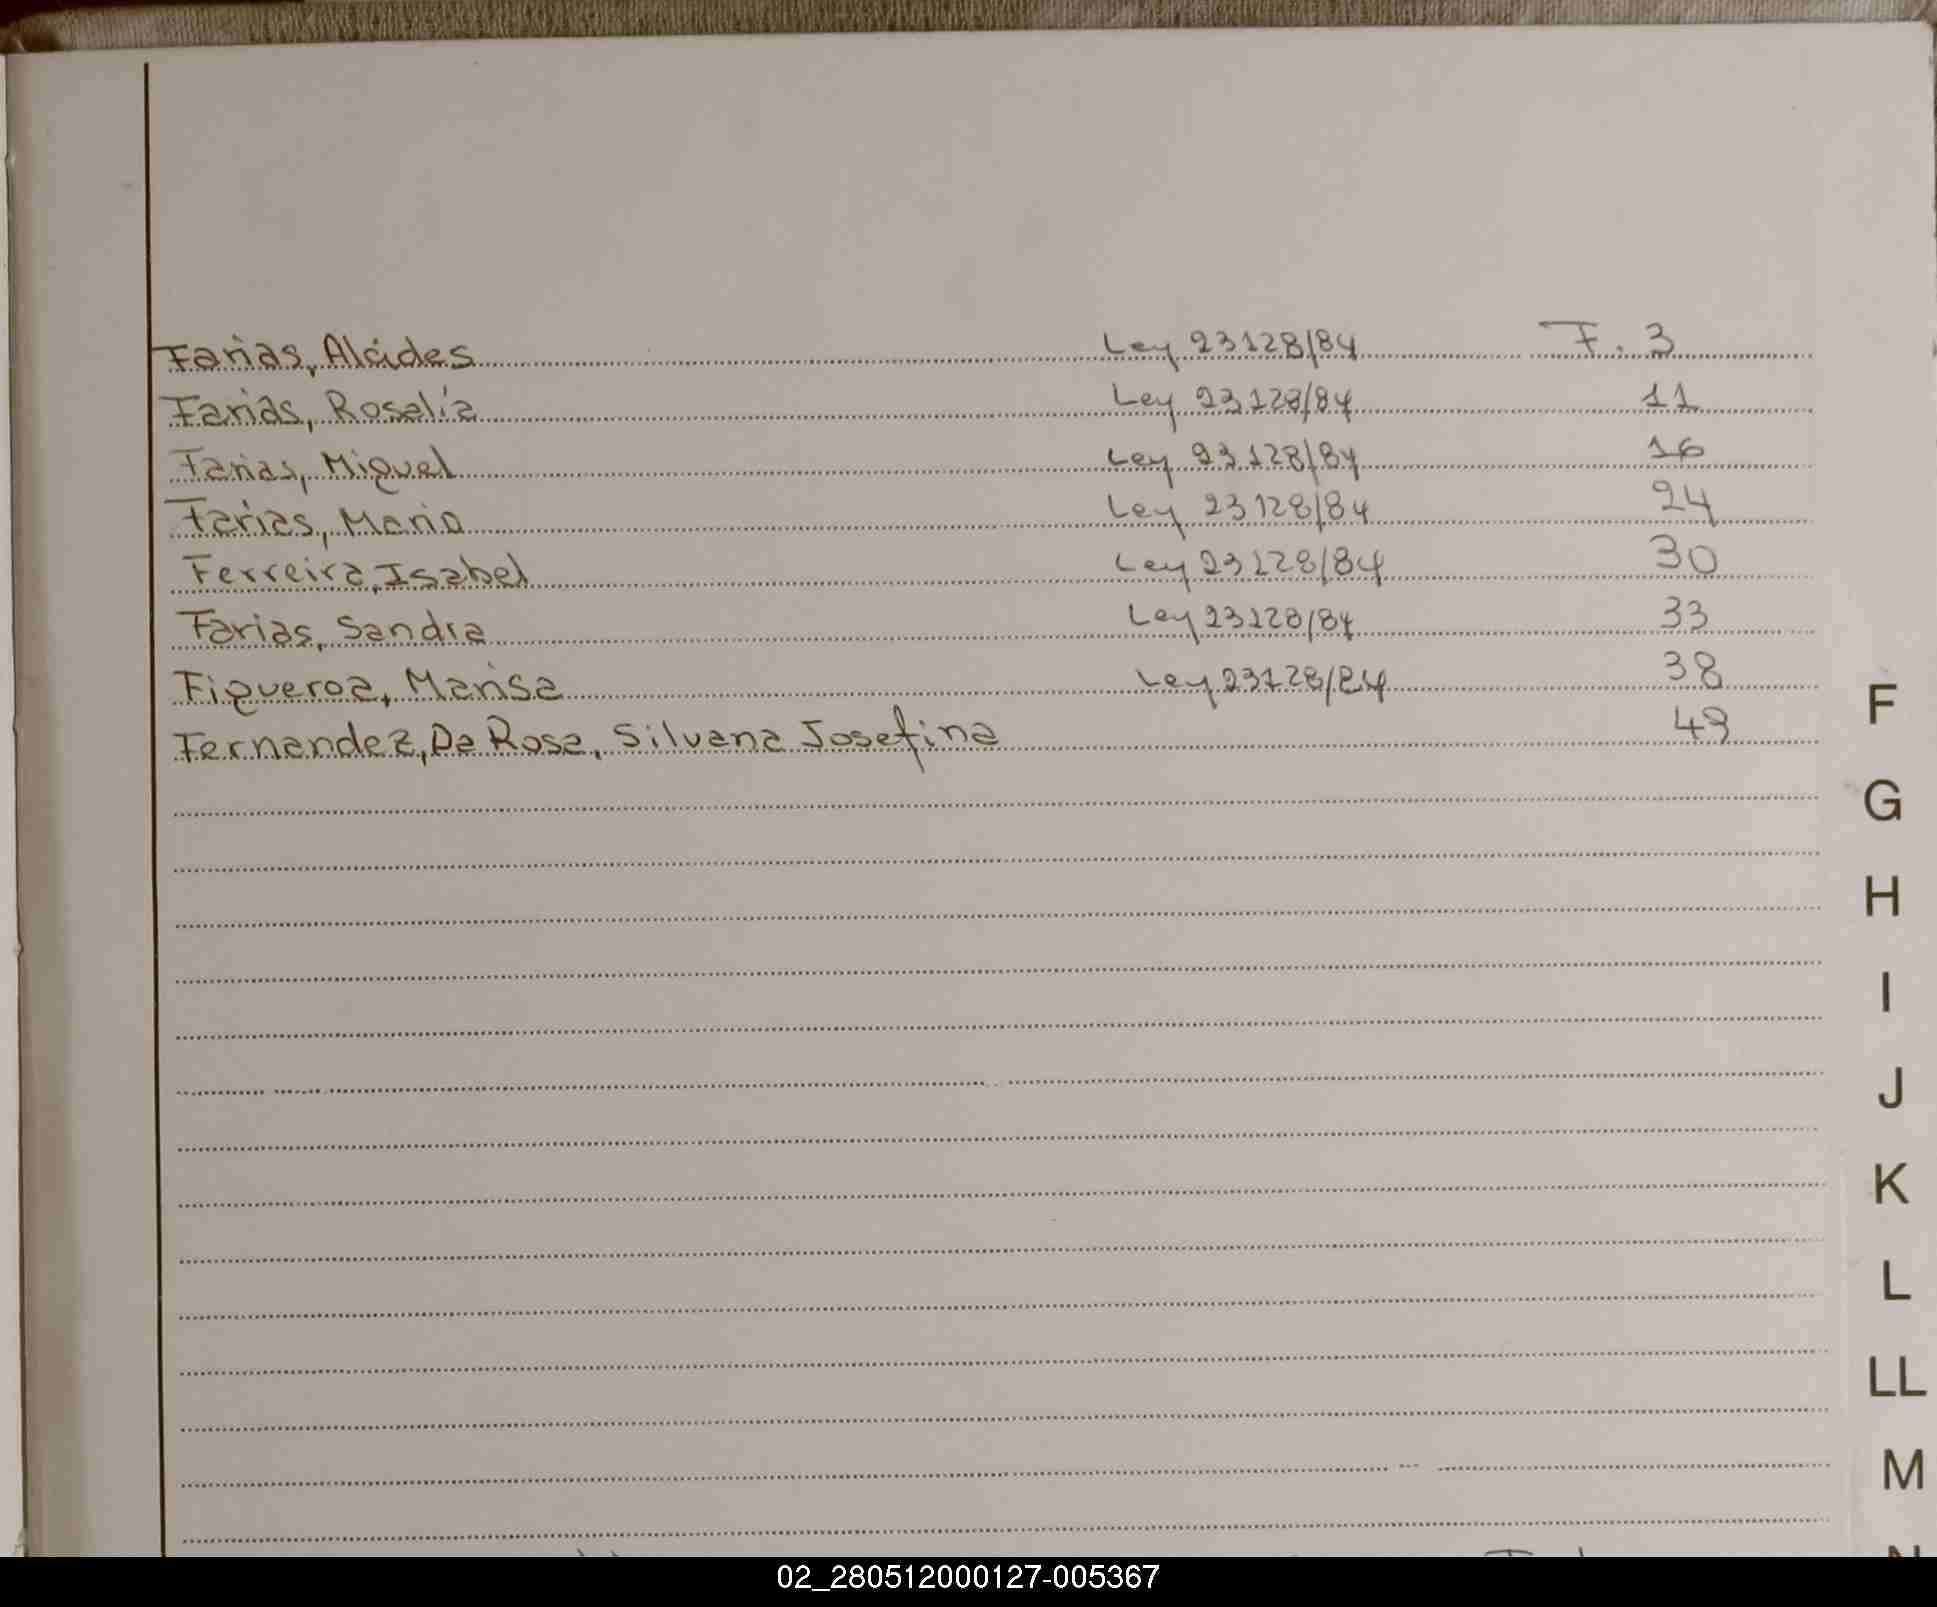 Farias, Alcides Ley 23128/84 F. 3
Farias, Rosalía Ley 23128/84 11
Farias, Miguel Ley 23128/84 16
Farias, Mario Ley 23128/84 24
Ferreira, Isabel Ley 23128/84 30
Farias, Sandra Ley 23128/84 33
Figueroa, Marisa Ley 23128/84 38
Fernandez, Da Rosa, Silvana Josefina 49
F
G
H
I
J
K
L
LL
M
02_280512000127-005367